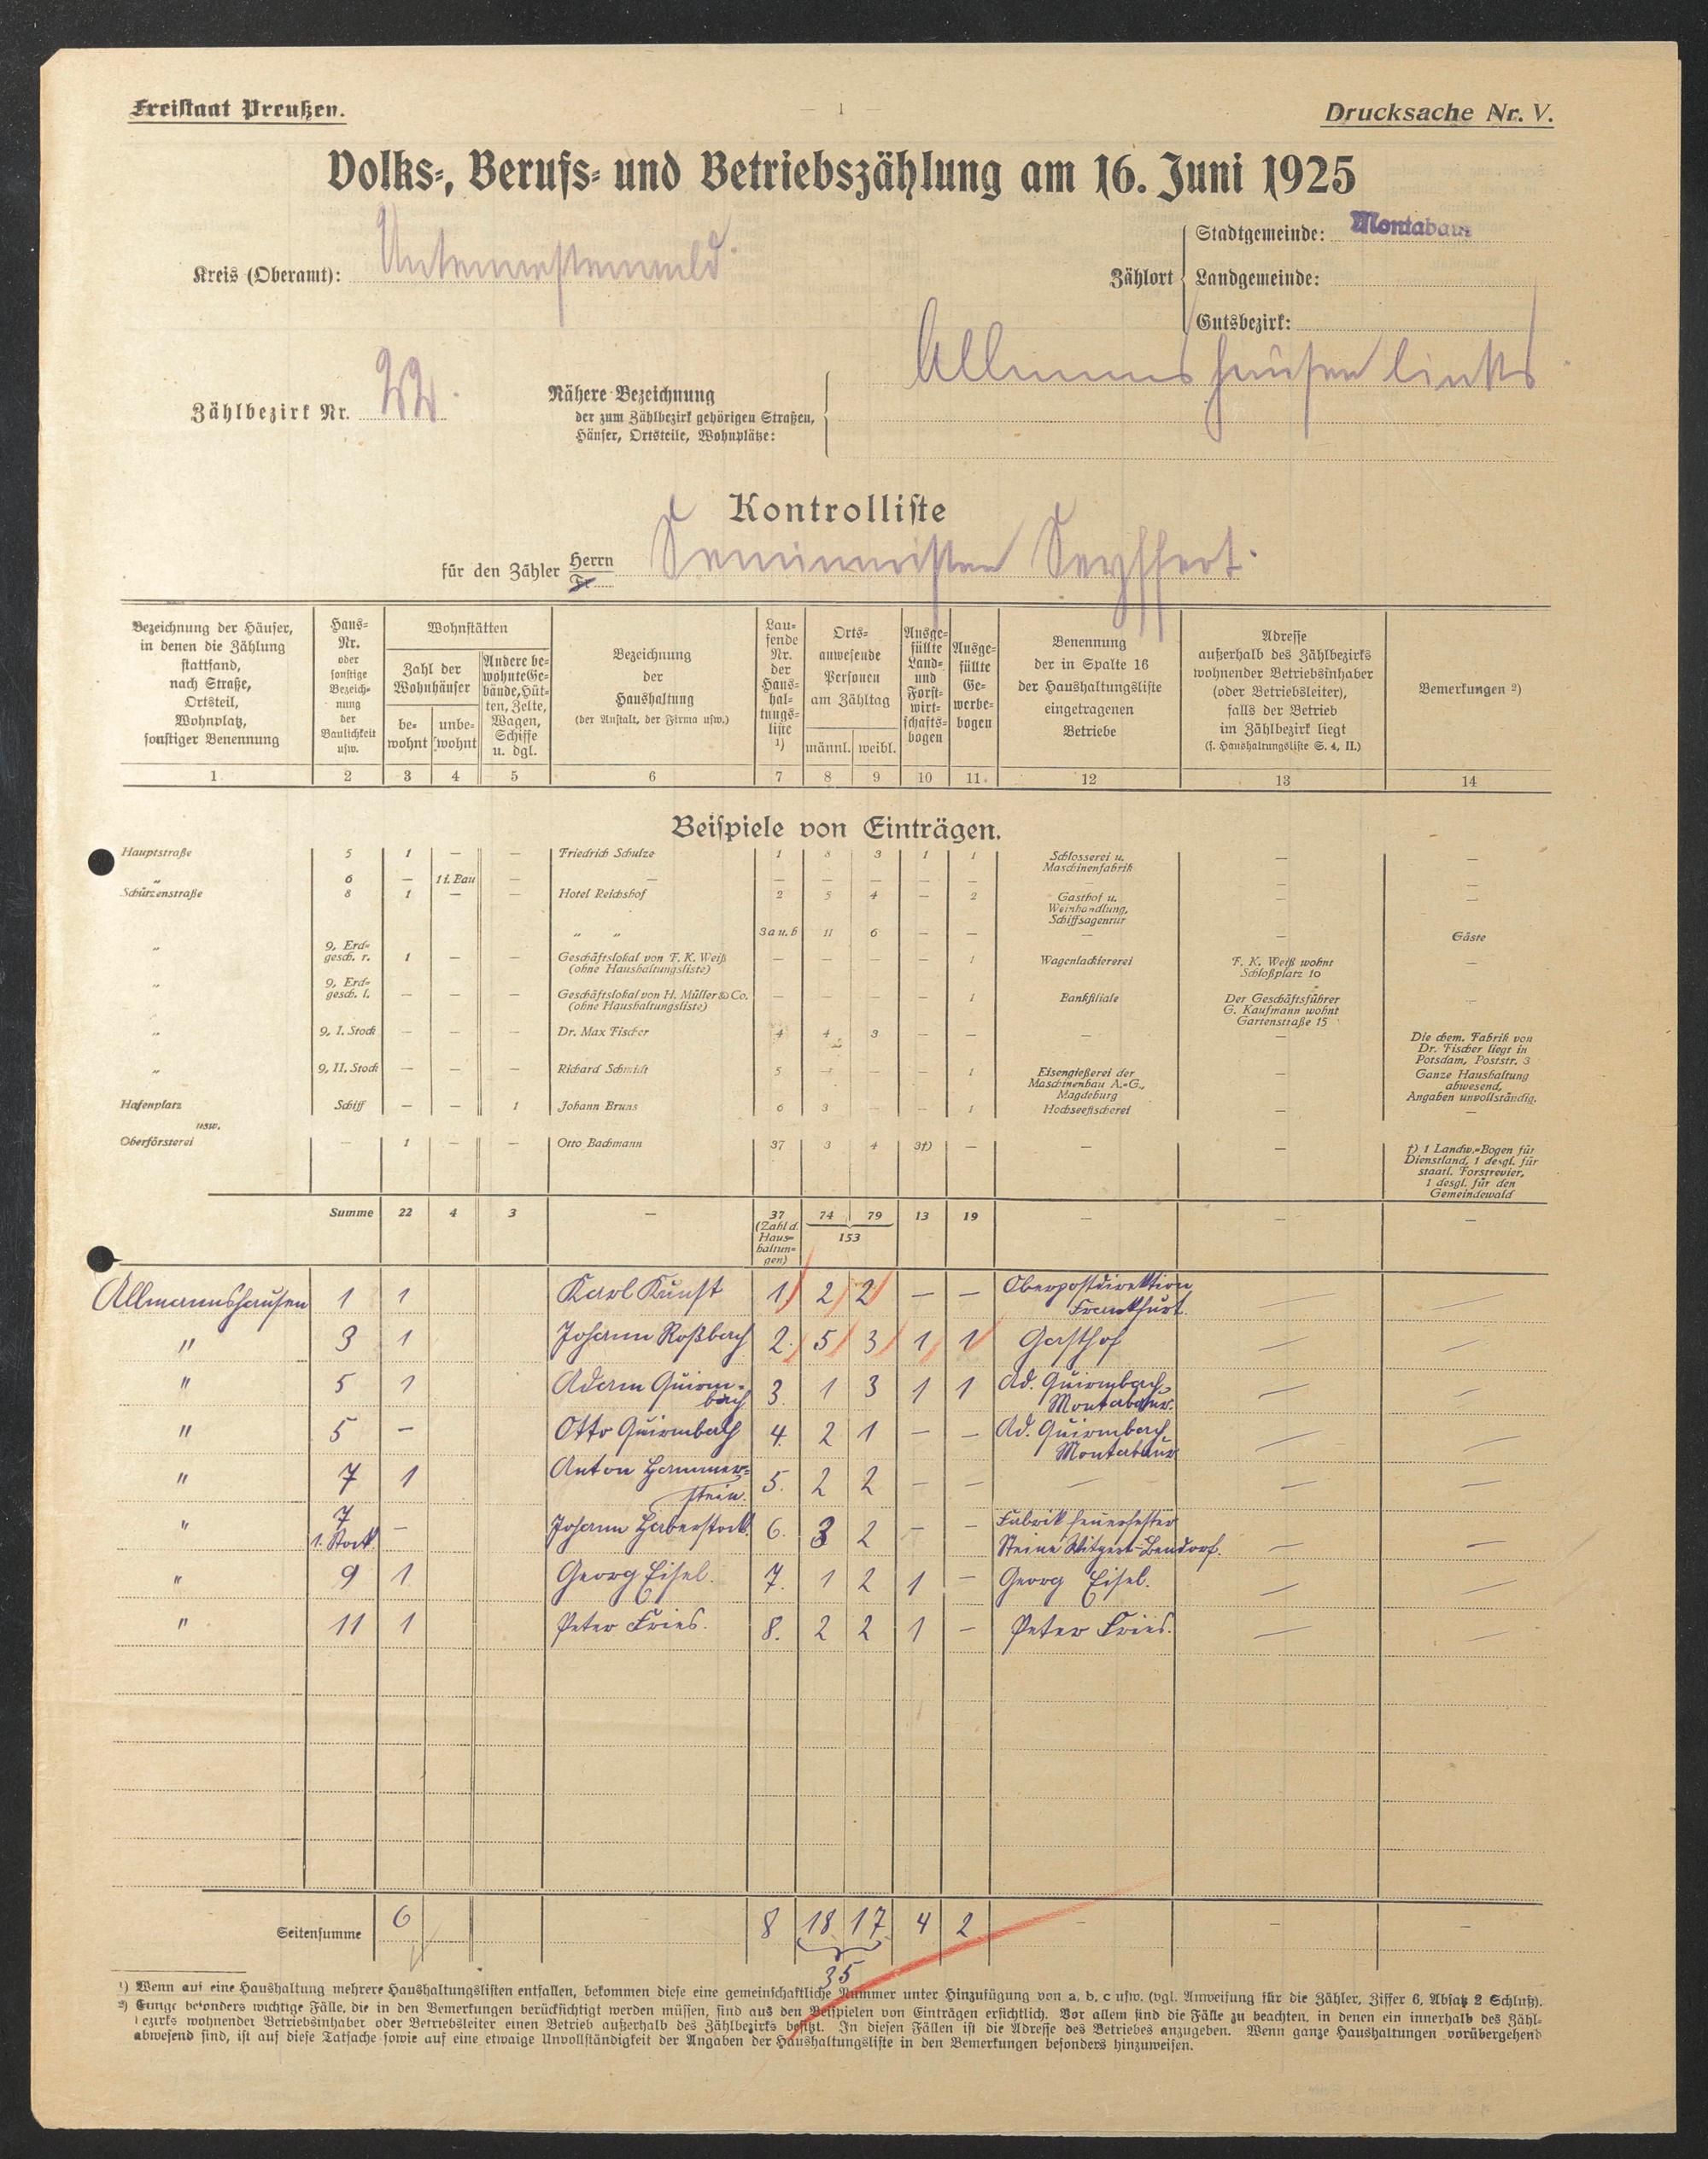 Freistaat Preußen.
— 1 —
Drucksache Nr. V.
Volks-, Berufs- und Betriebszählung am 16. Juni 1925
Kreis (Oberamt): Unterwesterwald.
Zählort
Stadtgemeinde: Montabaur
Landgemeinde:
Gutsbezirk:
Zählbezirk Nr. 22.
Nähere Bezeichnung
der zum Zählbezirk gehörigen Straßen,
Häuser, Ortsteile, Wohnplätze:
Allmannshausen links
Kontrolliste
für den Zähler Herrn Seminaristen Seyffert.
Fr
Bezeichnung der Häuser, in denen die Zählung stattfand, nach Straße, Ortsteil, Wohnplatz, sonstiger Benennung
Haus-Nr. oder sonstige Bezeichnung der Baulichkeit usw.
Wohnstätten
Zahl der Wohnhäuser
bewohnt
unbewohnt
Andere bewohnte Gebäude, Hütten, Zelte, Wagen, Schiffe u. dgl.
Bezeichnung der Haushaltung (der Anstalt, der Firma usw.)
Laufende Nr. der Haushaltungsliste ¹)
Ortsanwesende Personen am Zähltag
männl.
weibl.
Ausgefüllte Land- und Forstwirtschaftsbogen
Ausgefüllte Gewerbebogen
Benennung der in Spalte 16 der Haushaltungsliste eingetragenen Betriebe
Adresse außerhalb des Zählbezirks wohnender Betriebsinhaber (oder Betriebsleiter), falls der Betrieb im Zählbezirk liegt (s. Haushaltungsliste S. 4, II.)
Bemerkungen ²)
1 2 3 4 5 6 7 8 9 10 11 12 13 14
Beispiele von Einträgen.
Hauptstraße 5 1 — — Friedrich Schulze 1 8 3 1 1 Schlosserei u. Maschinenfabrik — —
„ 6 — 1 i. Bau — — — — — — — — — —
Schützenstraße 8 1 — — Hotel Reichshof 2 5 4 — 2 Gasthof u. Weinhandlung, Schiffsagentur — —
„ „ 3 a u. b 11 6 — — — — Gäste
„ 9, Erdgesch. r. 1 — — Geschäftslokal von F. K. Weiß (ohne Haushaltungsliste) — — — — 1 Wagenlackiererei F. K. Weiß wohnt Schloßplatz 10 —
„ 9, Erdgesch. l. — — — Geschäftslokal von H. Müller & Co. (ohne Haushaltungsliste) — — — — 1 Bankfiliale Der Geschäftsführer G. Kaufmann wohnt Gartenstraße 15 —
„ 9, I. Stock — — — Dr. Max Fischer 4 4 3 — — — — Die chem. Fabrik von Dr. Fischer liegt in Potsdam, Poststr. 3
„ 9, II. Stock — — — Richard Schmidt 5 — — — 1 Eisengießerei der Maschinenbau A.-G., Magdeburg — Ganze Haushaltung abwesend, Angaben unvollständig.
Hafenplatz Schiff — — 1 Johann Bruns 6 3 — — 1 Hochseefischerei — —
usw.
Oberförsterei — 1 — — Otto Bachmann 37 3 4 3†) — — — †) 1 Landw.-Bogen für Dienstland, 1 desgl. für staatl. Forstrevier, 1 desgl. für den Gemeindewald
Summe 22 4 3 — 37 (Zahl d. Haushaltungen) 74 79 13 19 — — —
153
Allmannshausen 1 1 Karl Kunst 1. 2 2 — — Oberpostdirektion Frankfurt. — —
" 3 1 Johann Roßbach 2. 5 3 1 1 Gasthof — —
" 5 1 Adam Quirmbach 3. 1 3 1 1 Ad. Quirmbach, Montabaur. — —
" 5 — Otto Quirmbach 4. 2 1 — — Ad. Quirmbach, Montabaur — —
" 7 1 Anton Hammerstein. 5. 2 2 — — — — —
" 7 1. Stock — Johann Haberstock. 6. 3 2 — — Fabrik feuerfester Steine Witgert-Bendorf. — —
" 9 1 Georg Eisel. 7. 1 2 1 — Georg Eisel. — —
" 11 1 Peter Fries. 8. 2 2 1 — Peter Fries. — —
Seitensumme 6 — 8 18 17 4 2 — — —
35
¹) Wenn auf eine Haushaltung mehrere Haushaltungslisten entfallen, bekommen diese eine gemeinschaftliche Nummer unter Hinzufügung von a, b, c usw. (vgl. Anweisung für die Zähler, Ziffer 6, Absatz 2 Schluß).
²) Einige besonders wichtige Fälle, die in den Bemerkungen berücksichtigt werden müssen, sind aus den Beispielen von Einträgen ersichtlich. Vor allem sind die Fälle zu beachten, in denen ein innerhalb des Zähl-
bezirks wohnender Betriebsinhaber oder Betriebsleiter einen Betrieb außerhalb des Zählbezirks besitzt. In diesen Fällen ist die Adresse des Betriebes anzugeben. Wenn ganze Haushaltungen vorübergehend
abwesend sind, ist auf diese Tatsache sowie auf eine etwaige Unvollständigkeit der Angaben der Haushaltungsliste in den Bemerkungen besonders hinzuweisen.